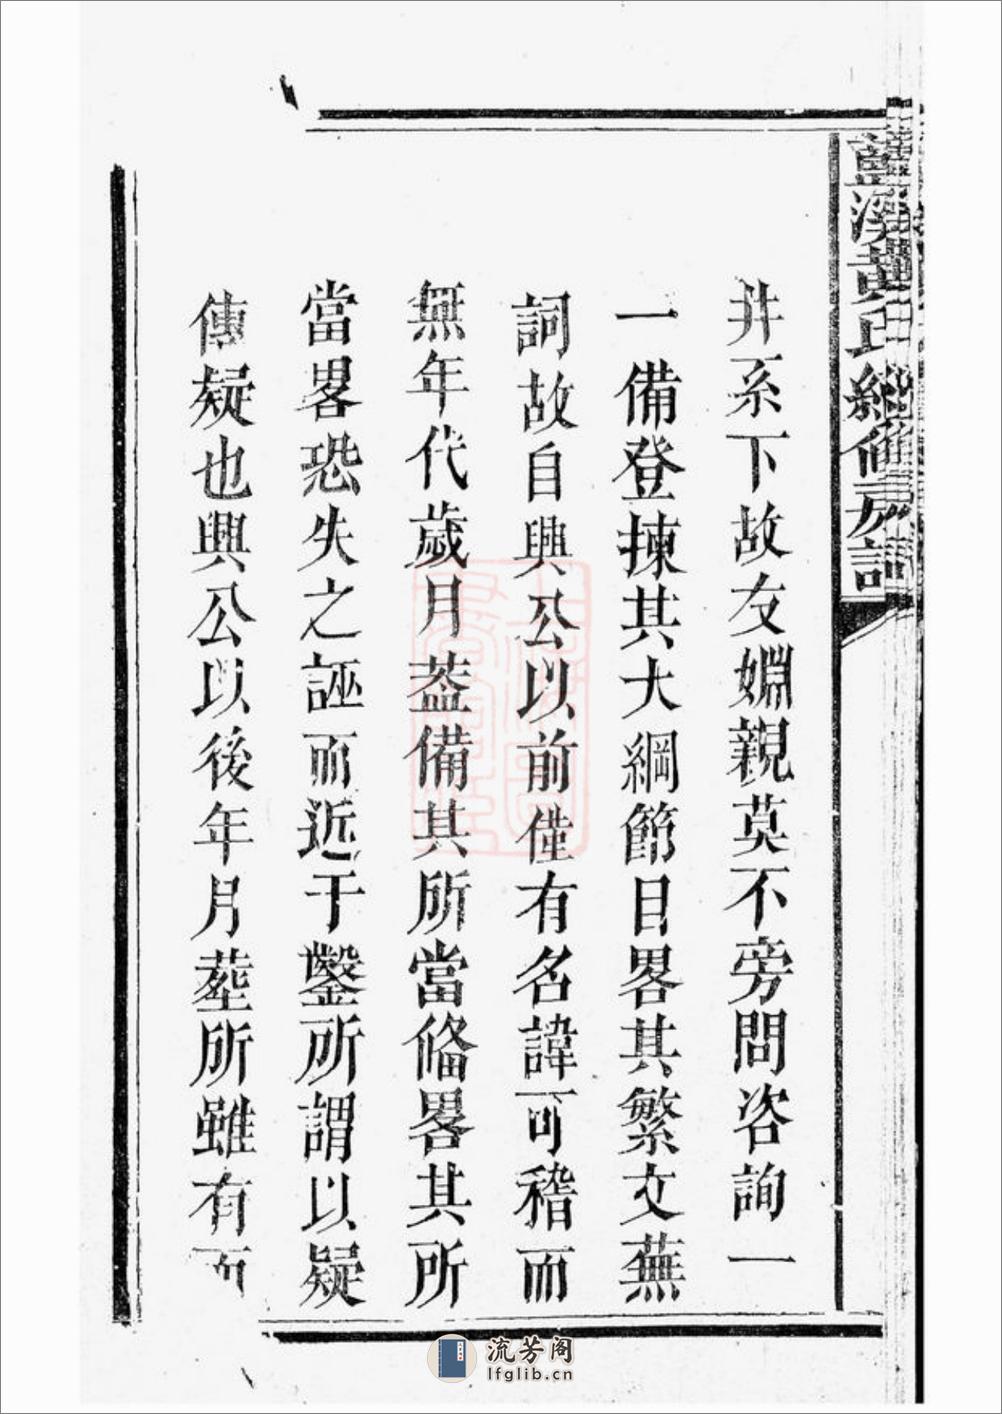 藍溪黃氏經俻房譜
井系下故友婣親莫不旁問咨詢一
一備登揀其大綱節目畧其繁文蕪
詞故自興公以前僅有名諱可稽而
無年代歲月葢備其所當俻畧其所
當畧恐失之誣而近于鑿所謂以疑
傳疑也興公以後年月塟所雖有而
流芳阁
lfglib.cn